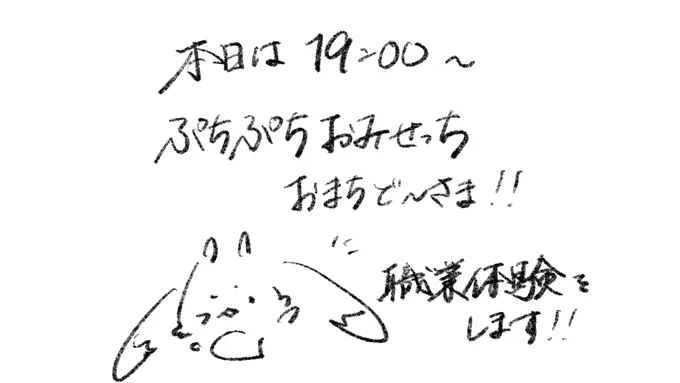 本日は 19:00～
ぷちぷちおみせっち
おまちど～さま!!
に
職業体験を
します!!